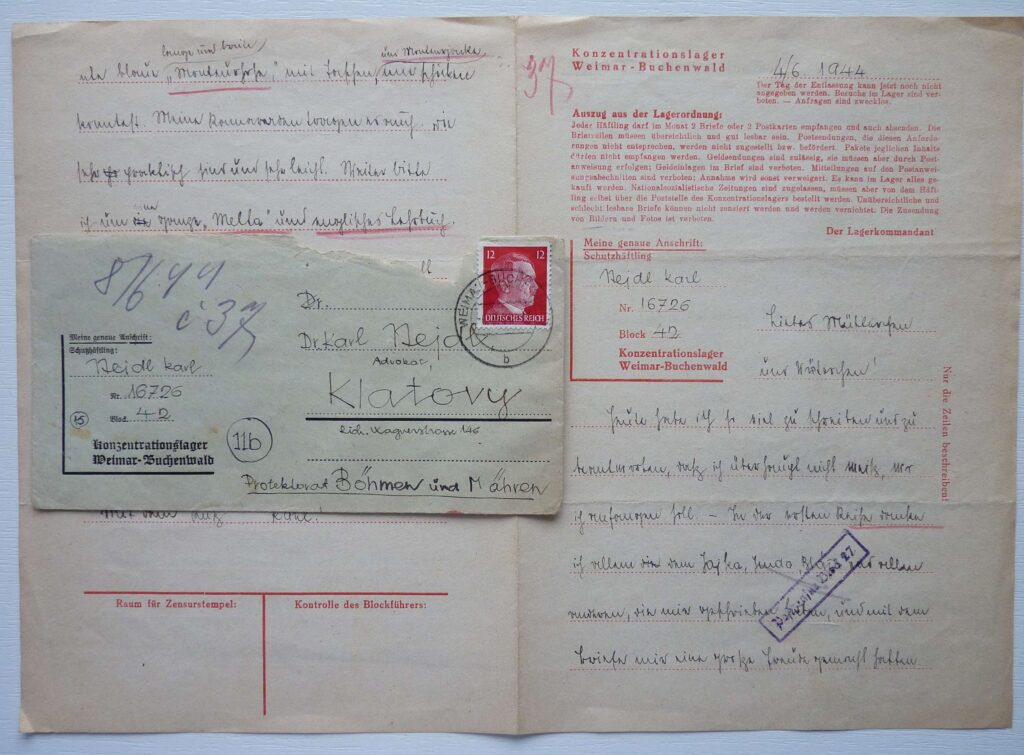 lange und breite, und Monteurjacke
ute blaue „Monteurhose," mit Taschen, und schicken
könntest. Meine Kameraden tragen es auch, die
sehr praktisch sind und sehr leicht. Weiter bitte
ich um eine ganze „Melta" und englisches Lehrbuch.
Konzentrationslager
Weimar-Buchenwald
37
4/6. 1944
Der Tag der Entlassung kann jetzt noch nicht
angegeben werden. Besuche im Lager sind ver-
boten. — Anfragen sind zwecklos.
Auszug aus der Lagerordnung:
Jeder Häftling darf im Monat 2 Briefe oder 2 Postkarten empfangen und auch absenden. Die
Briefzeilen müssen übersichtlich und gut lesbar sein. Postsendungen, die diesen Anforde-
rungen nicht entsprechen, werden nicht zugestellt bzw. befördert. Pakete jeglichen Inhalts
dürfen nicht empfangen werden. Geldsendungen sind zulässig, sie müssen aber durch Post-
anweisung erfolgen; Geldeinlagen im Brief sind verboten. Mitteilungen auf den Postanwei-
sungsabschnitten sind verboten; Annahme wird sonst verweigert. Es kann im Lager alles ge-
kauft werden. Nationalsozialistische Zeitungen sind zugelassen, müssen aber von dem Häft-
ling selbst über die Poststelle des Konzentrationslagers bestellt werden. Unübersichtliche und
schlecht lesbare Briefe können nicht zensiert werden und werden vernichtet. Die Zusendung
von Bildern und Fotos ist verboten.
Der Lagerkommandant
Meine genaue Anschrift:
Schutzhäftling
Nejdl Karl
Nr. 16726
Block 42
Konzentrationslager
Weimar-Buchenwald
Liebes Mütterchen
und Väterchen!
Heute habe ich so viel zu schreiben und zu
beantworten, daß ich überhaupt nicht weiß, wo
ich anfangen soll – In der ersten Reihe danke
ich allen die dem Jajka,
anderen, die mir geschrieben hatten, und mit dem
Briefe mir eine große Freude gemacht hatten
Nur die Zeilen beschreiben!
Block 27
8/6. 44
č 37
Meine genaue Anschrift:
Schutzhäftling:
Nejdl Karl
Nr. 16726
Block 42
Konzentrationslager
Weimar-Buchenwald
11b
12 12
DEUTSCHES REICH
WEIMAR-BUCHENWALD
b
Dr.
Dr. Karl Nejdl
Advokat,
Klatovy
Rich. Wagnerstrasse 146
Protektorat Böhmen und Mähren
Karl!
Raum für Zensurstempel:
Kontrolle des Blockführers: